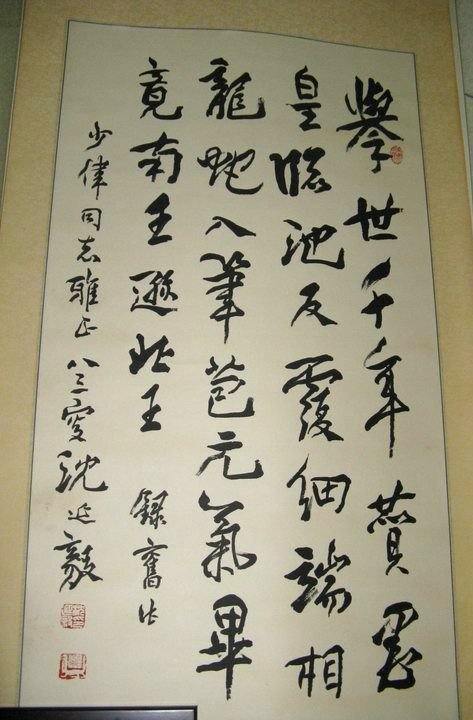 擧世千年贊墨
皇臨池反覆細端相
龍蛇入筆苞元氣畢
竟南王遜北王 録舊作
少偉同志雅正 八三叟沈延毅